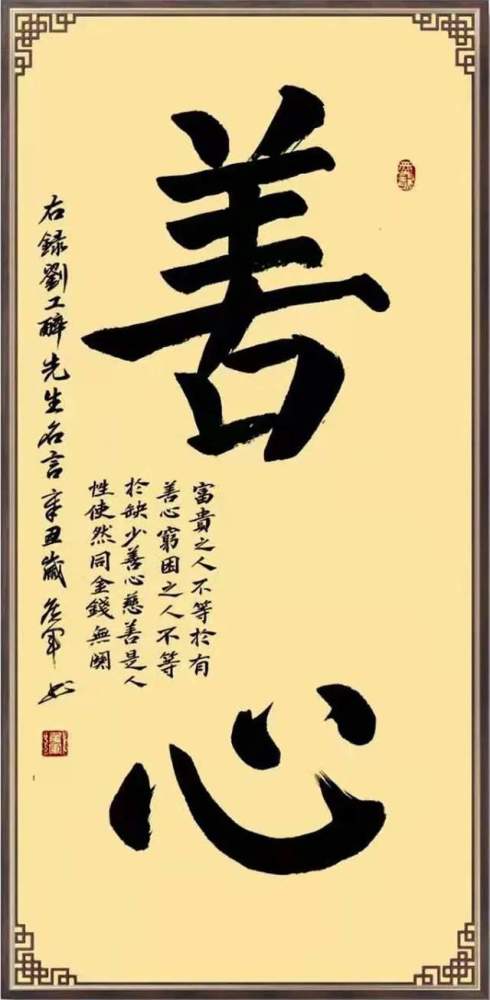 善心
富貴之人不等於有
善心窮困之人不等
於缺少善心慈善是人
性使然同金錢無関
右録劉工醉先生名言辛丑歲